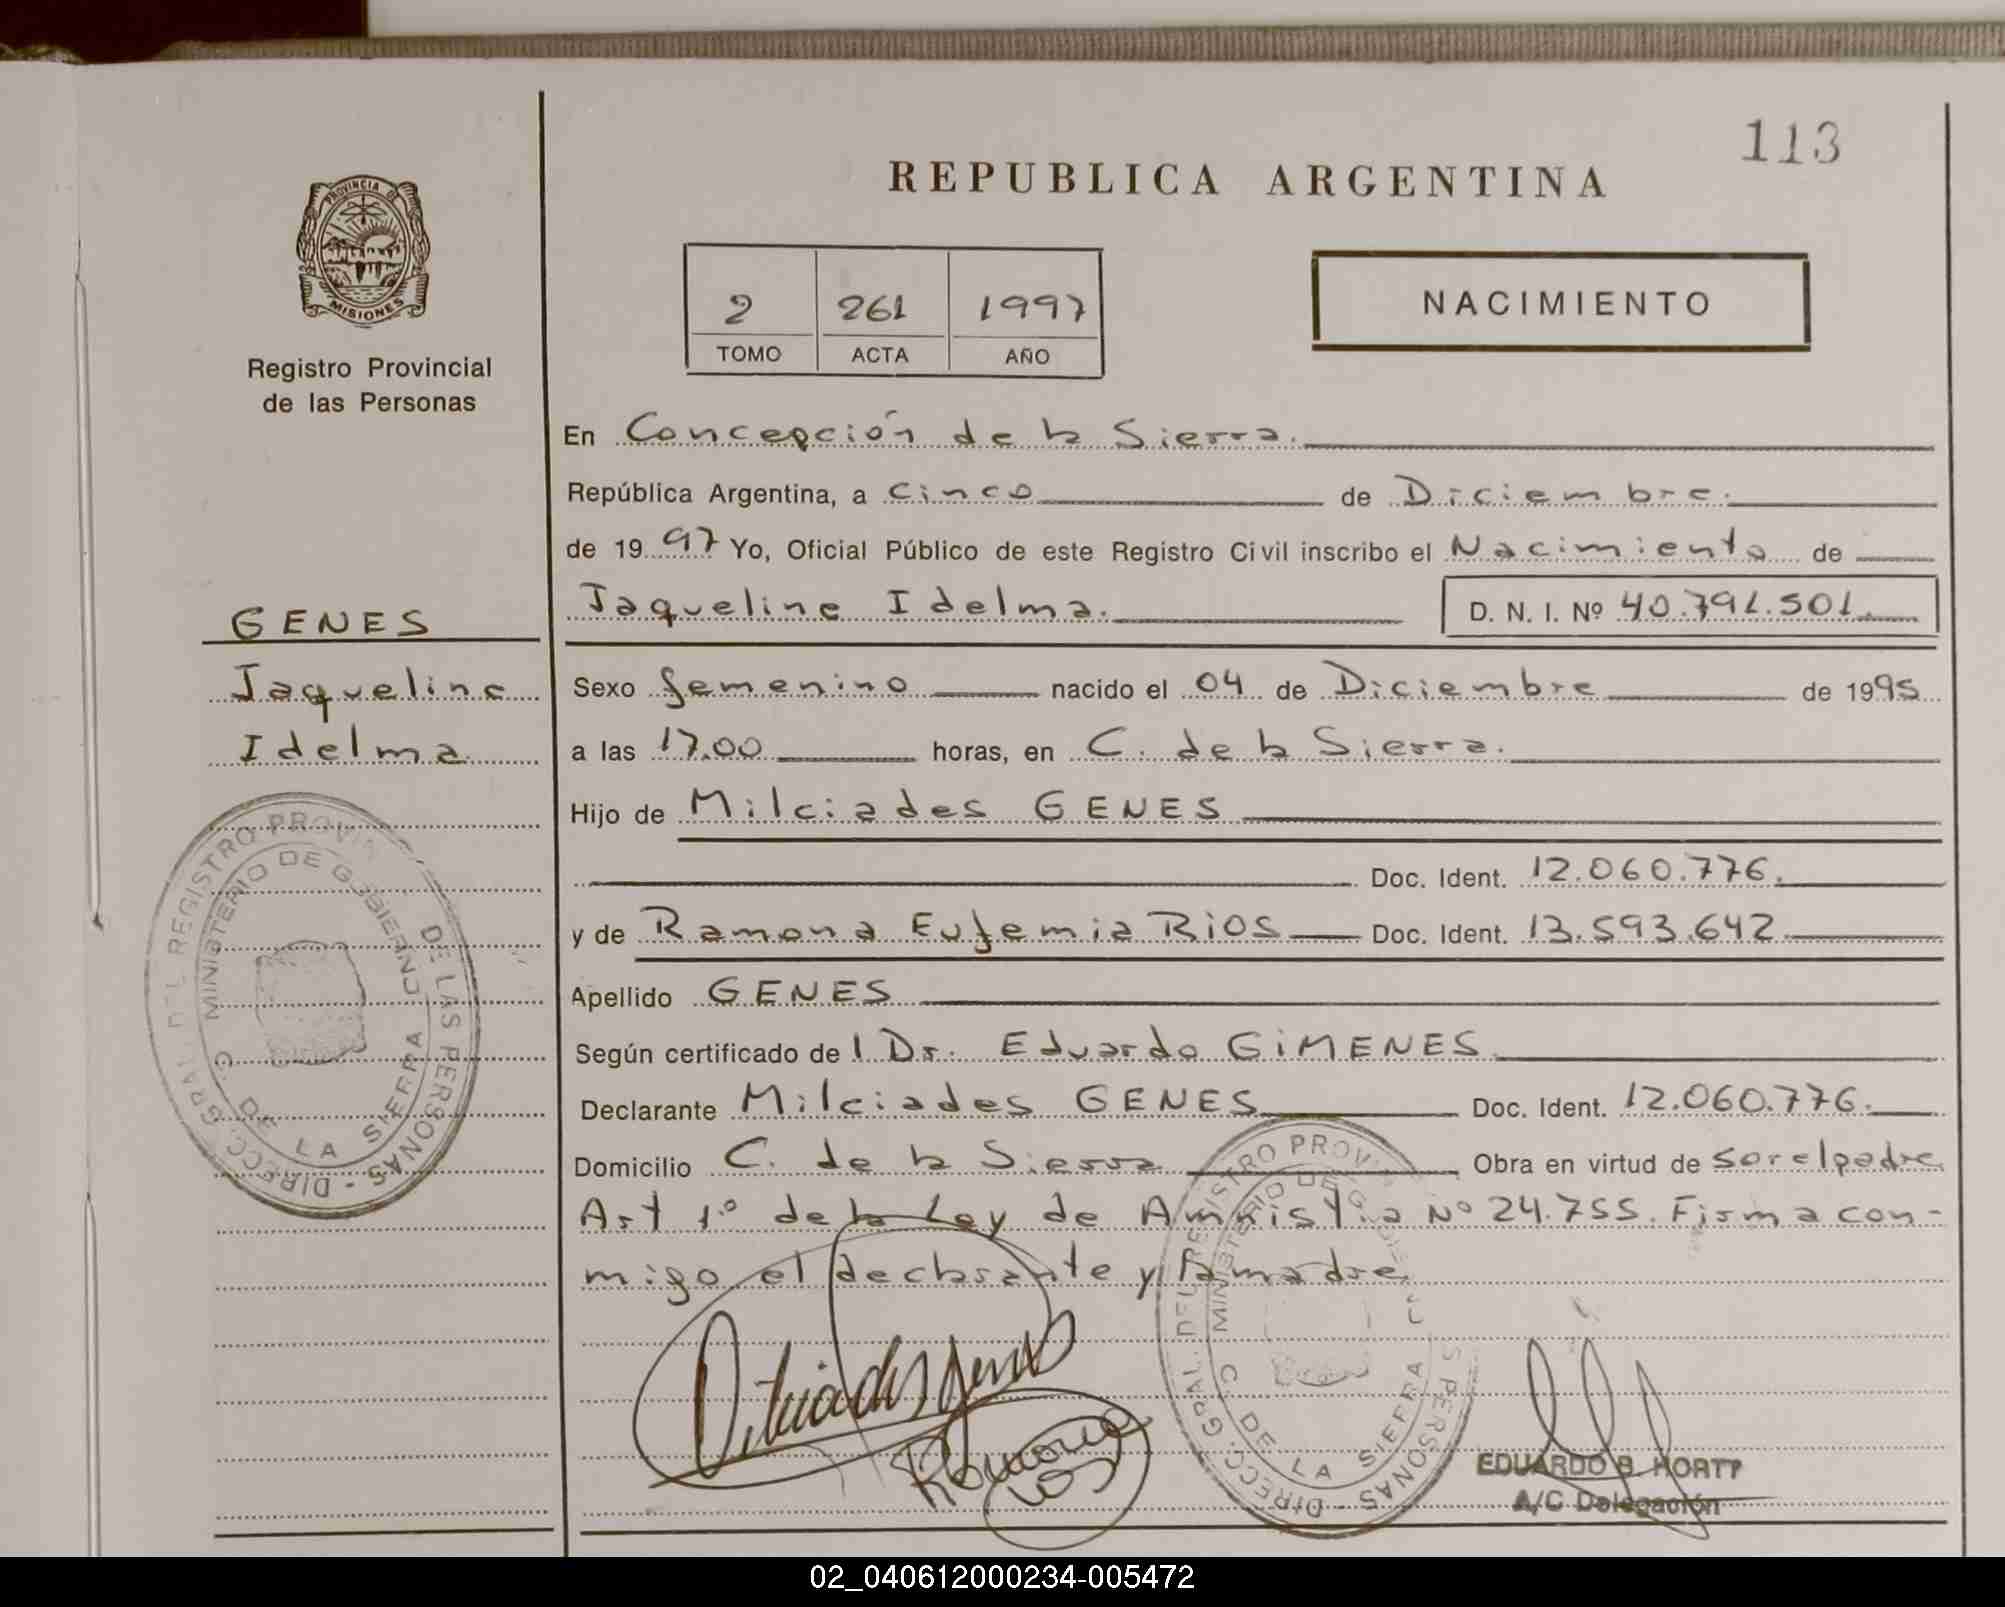 113
REPUBLICA ARGENTINA
PROVINCIA DE
MISIONES
Registro Provincial
de las Personas
2 261 1997
TOMO ACTA AÑO
NACIMIENTO
En Concepción de la Sierra.
República Argentina, a cinco de Diciembre.
de 1997 Yo, Oficial Público de este Registro Civil inscribo el Nacimiento de
Jaqueline Idelma. D. N. I. Nº 40.791.501.
GENES
Jaqueline
Idelma.
Sexo femenino nacido el 04 de Diciembre de 1995
a las 17.00 horas, en C. de la Sierra.
Hijo de Milciades GENES
Doc. Ident. 12.060.776.
y de Ramona Eufemia RiOS Doc. Ident. 13.593.642
Apellido GENES
Según certificado de 1 Dr. Eduardo GiMENES
Declarante Milciades GENES Doc. Ident. 12.060.776.
Domicilio C. de la Sierra Obra en virtud de ser el padre
Art 1º de la Ley de Amnistia Nº 24.755. Firma con-
migo el declarante y la madre
DIRECC. GRAL. DEL REGISTRO PROVIN DE LAS PERSONAS -
MINISTERIO DE GOBIERNO
C. DE LA SIERRA
DIRECC. GRAL. DEL REGISTRO PROVI S PERSONAS -
MINISTERIO DE G
C. DE LA SIERRA
Milciades Genes
Ramona
EDUARDO B. HORTT
A/C Delegación
02_040612000234-005472